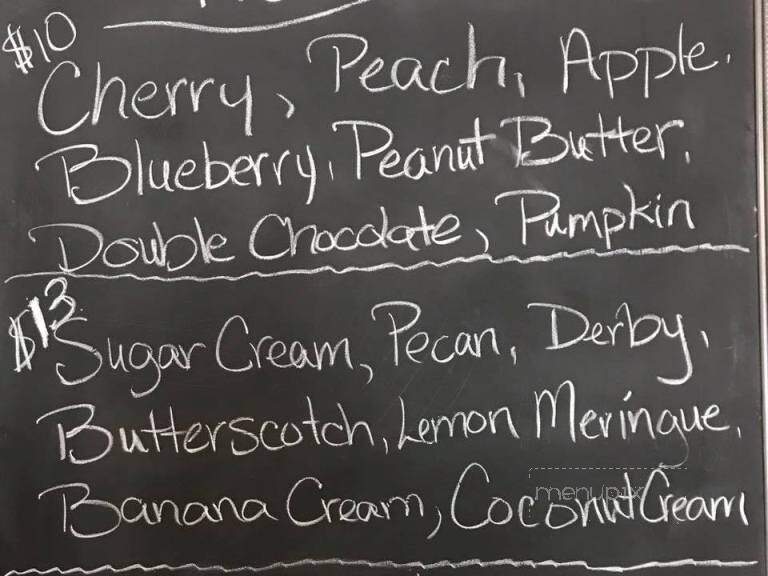 $10
Cherry, Peach, Apple,
Blueberry, Peanut Butter,
Double Chocolate, Pumpkin
$13
Sugar Cream, Pecan, Derby,
Butterscotch, Lemon Meringue,
Banana Cream, Coconut Cream
menupix